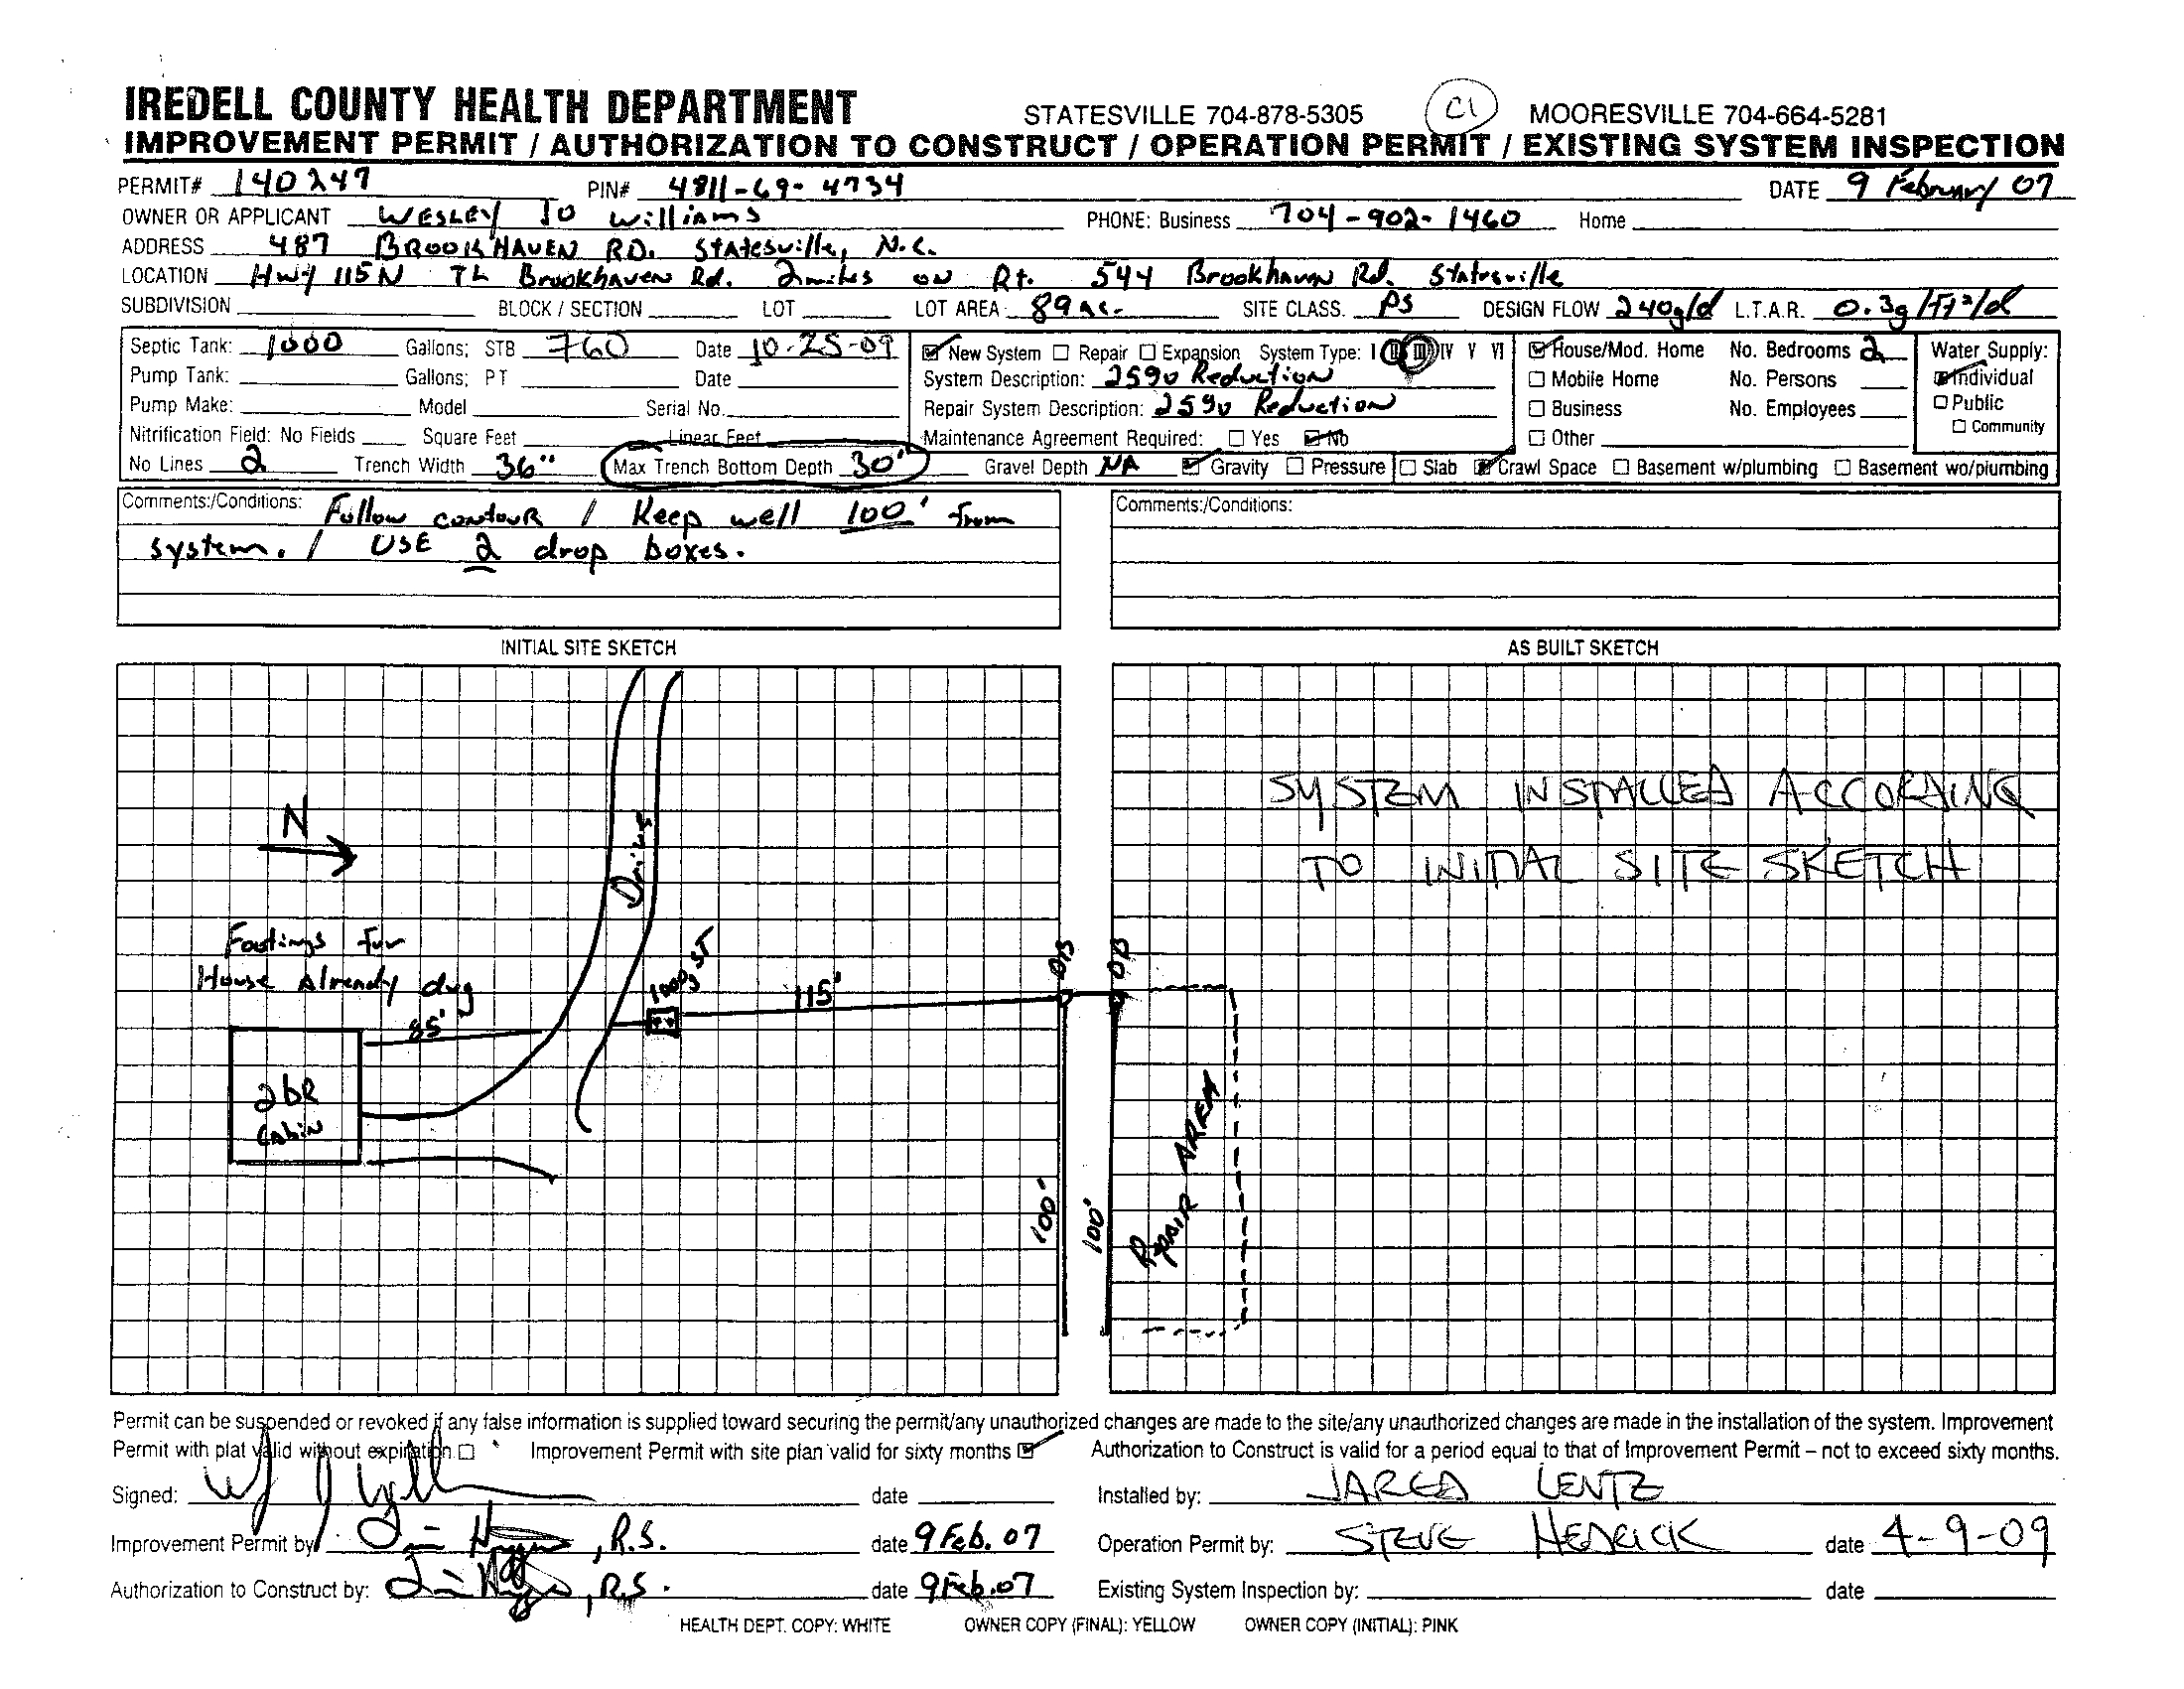 IREDELL COUNTY HEALTH DEPARTMENT STATESVILLE 704-878-5305 C1 MOORESVILLE 704-664-5281
IMPROVEMENT PERMIT / AUTHORIZATION TO CONSTRUCT / OPERATION PERMIT / EXISTING SYSTEM INSPECTION
PERMIT# 140247 PIN# 4811-69-4734 DATE 9 February 07
OWNER OR APPLICANT WESLEY JO Williams PHONE: Business 704-902-1460 Home
ADDRESS 487 BROOKHAVEN RD. Statesville, N.C.
LOCATION Hwy 115N TL Brookhaven Rd. 2miles on Rt. 544 Brookhaven Rd. Statesville
SUBDIVISION BLOCK / SECTION LOT LOT AREA 89 ac. SITE CLASS. PS DESIGN FLOW 240g/d L.T.A.R. 0.3g/Ft²/d
Septic Tank: 1000 Gallons; STB 760 Date 10-25-09 New System Repair Expansion System Type: I II III IV V VI House/Mod. Home No. Bedrooms 2 Water Supply:
Pump Tank: Gallons; PT Date System Description: 25% Reduction Mobile Home No. Persons Individual
Pump Make: Model Serial No. Repair System Description: 25% Reduction Business No. Employees Public
Nitrification Field: No Fields Square Feet Linear Feet Maintenance Agreement Required: Yes No Other Community
No Lines 2 Trench Width 36" Max Trench Bottom Depth 30" Gravel Depth NA Gravity Pressure Slab Crawl Space Basement w/plumbing Basement wo/plumbing
Comments:/Conditions: Follow contour / Keep well 100' from
system. / USE 2 drop boxes.
Comments:/Conditions:
INITIAL SITE SKETCH AS BUILT SKETCH
SYSTEM INSTALLED ACCORDING
TO INITIAL SITE SKETCH
N
Drive
Footings for
House Already dug
85'
1000g ST
115'
DB
DB
2bR
Cabin
100'
100'
Repair AREA
Permit can be suspended or revoked if any false information is supplied toward securing the permit/any unauthorized changes are made to the site/any unauthorized changes are made in the installation of the system. Improvement
Permit with plat valid without expiration. Improvement Permit with site plan valid for sixty months Authorization to Construct is valid for a period equal to that of Improvement Permit – not to exceed sixty months.
Signed: date Installed by: JARED LENTZ
Improvement Permit by: , R.S. date 9 Feb. 07 Operation Permit by: STEVE HEDRICK date 4-9-09
Authorization to Construct by: , R.S. date 9 Feb. 07 Existing System Inspection by: date
HEALTH DEPT. COPY: WHITE OWNER COPY (FINAL): YELLOW OWNER COPY (INITIAL): PINK